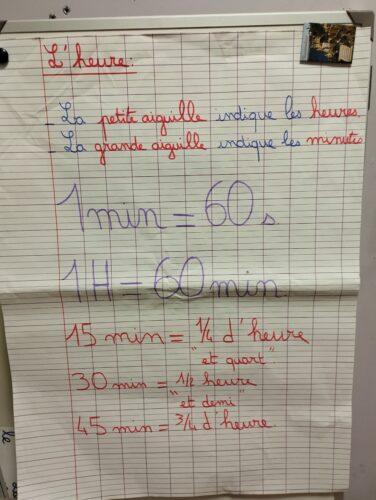 L'heure:
- La petite aiguille indique les heures.
- La grande aiguille indique les minutes
1min = 60s.
1H = 60min.
15 min = 1/4 d'heure
"et quart".
30 min = 1/2 heure
"et demi"
45 min = 3/4 d'heure.
le